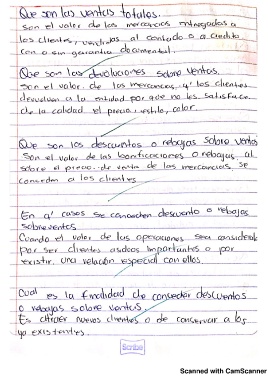 Que son las ventas totales.
son el valor de las mercancias entregadas a
los clientes, vendidas al contado o a credito
con o sin garantia documental.
Que son las devoluciones sobre ventas.
son el valor de las mercancias, q' los clientes
devuelven a la entidad por que no les satisface
de la calidad el precio, estilo, color.
Que son los descuentos o rebajas sobre ventas
son el valor de las bonificaciones o rebajas, al
sobre el precio de venta de las mercancias, se
conceden a los clientes.
En q' casos se conceden descuento o rebajas
sobre ventas
Cuando el valor de las operaciones sea considerable
por ser clientes asiduos importantes o por
existir una relación especial con ellos.
Cual es la finalidad de conceder descuentos
o rebajas sobre ventas.
Es atraer nuevos clientes o de conservar a los
ya existentes.
Scribe
Scanned with CamScanner